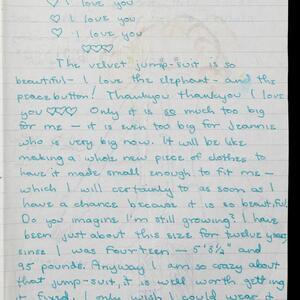 ♡ I love you
♡ I love you
♡ I love you
♡♡♡
The velvet jump-suit is so
beautiful - I love the elephant - and the
peacebutton! Thankyou thankyou I love
you ♡♡♡ Only it is so much too big
for me - it is even too big for Jeannie
who is very big now. It will be like
making a whole new piece of clothes to
have it made small enough to fit me -
which I will certainly to as soon as I
have a chance because it is so beautiful.
Do you imagine I'm still growing? I have
been just about this size for twelve years,
since I was fourteen - 5'3½" and
95 pounds. Anyway I am so crazy about
that jump-suit, it is well worth getting
it fixed. I only wish I could wear it